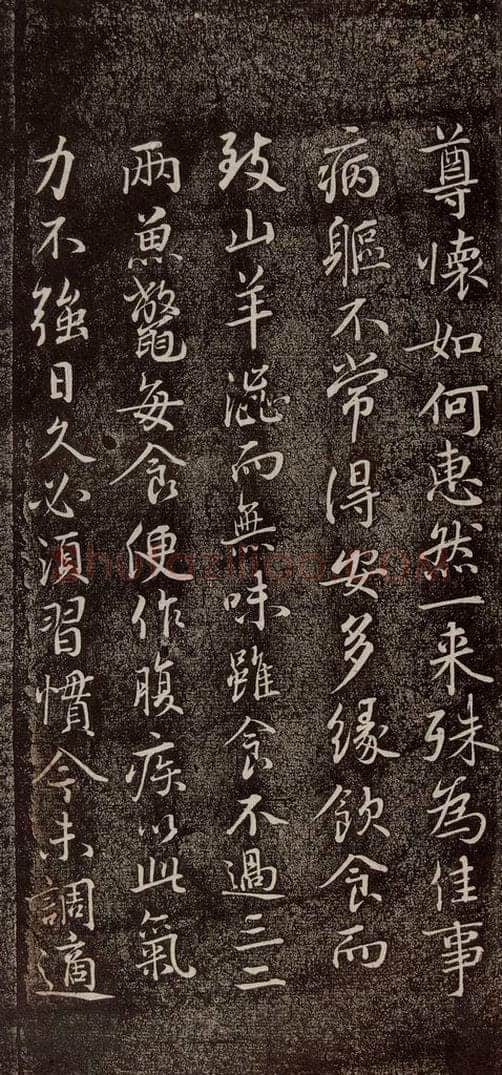 尊懷如何惠然一来殊為佳事
病軀不常得安多緣飲食而
致山羊澀而無味雖食不過三二
兩魚鼈每食便作腹疾以此氣
力不強日久必須習慣今未調適